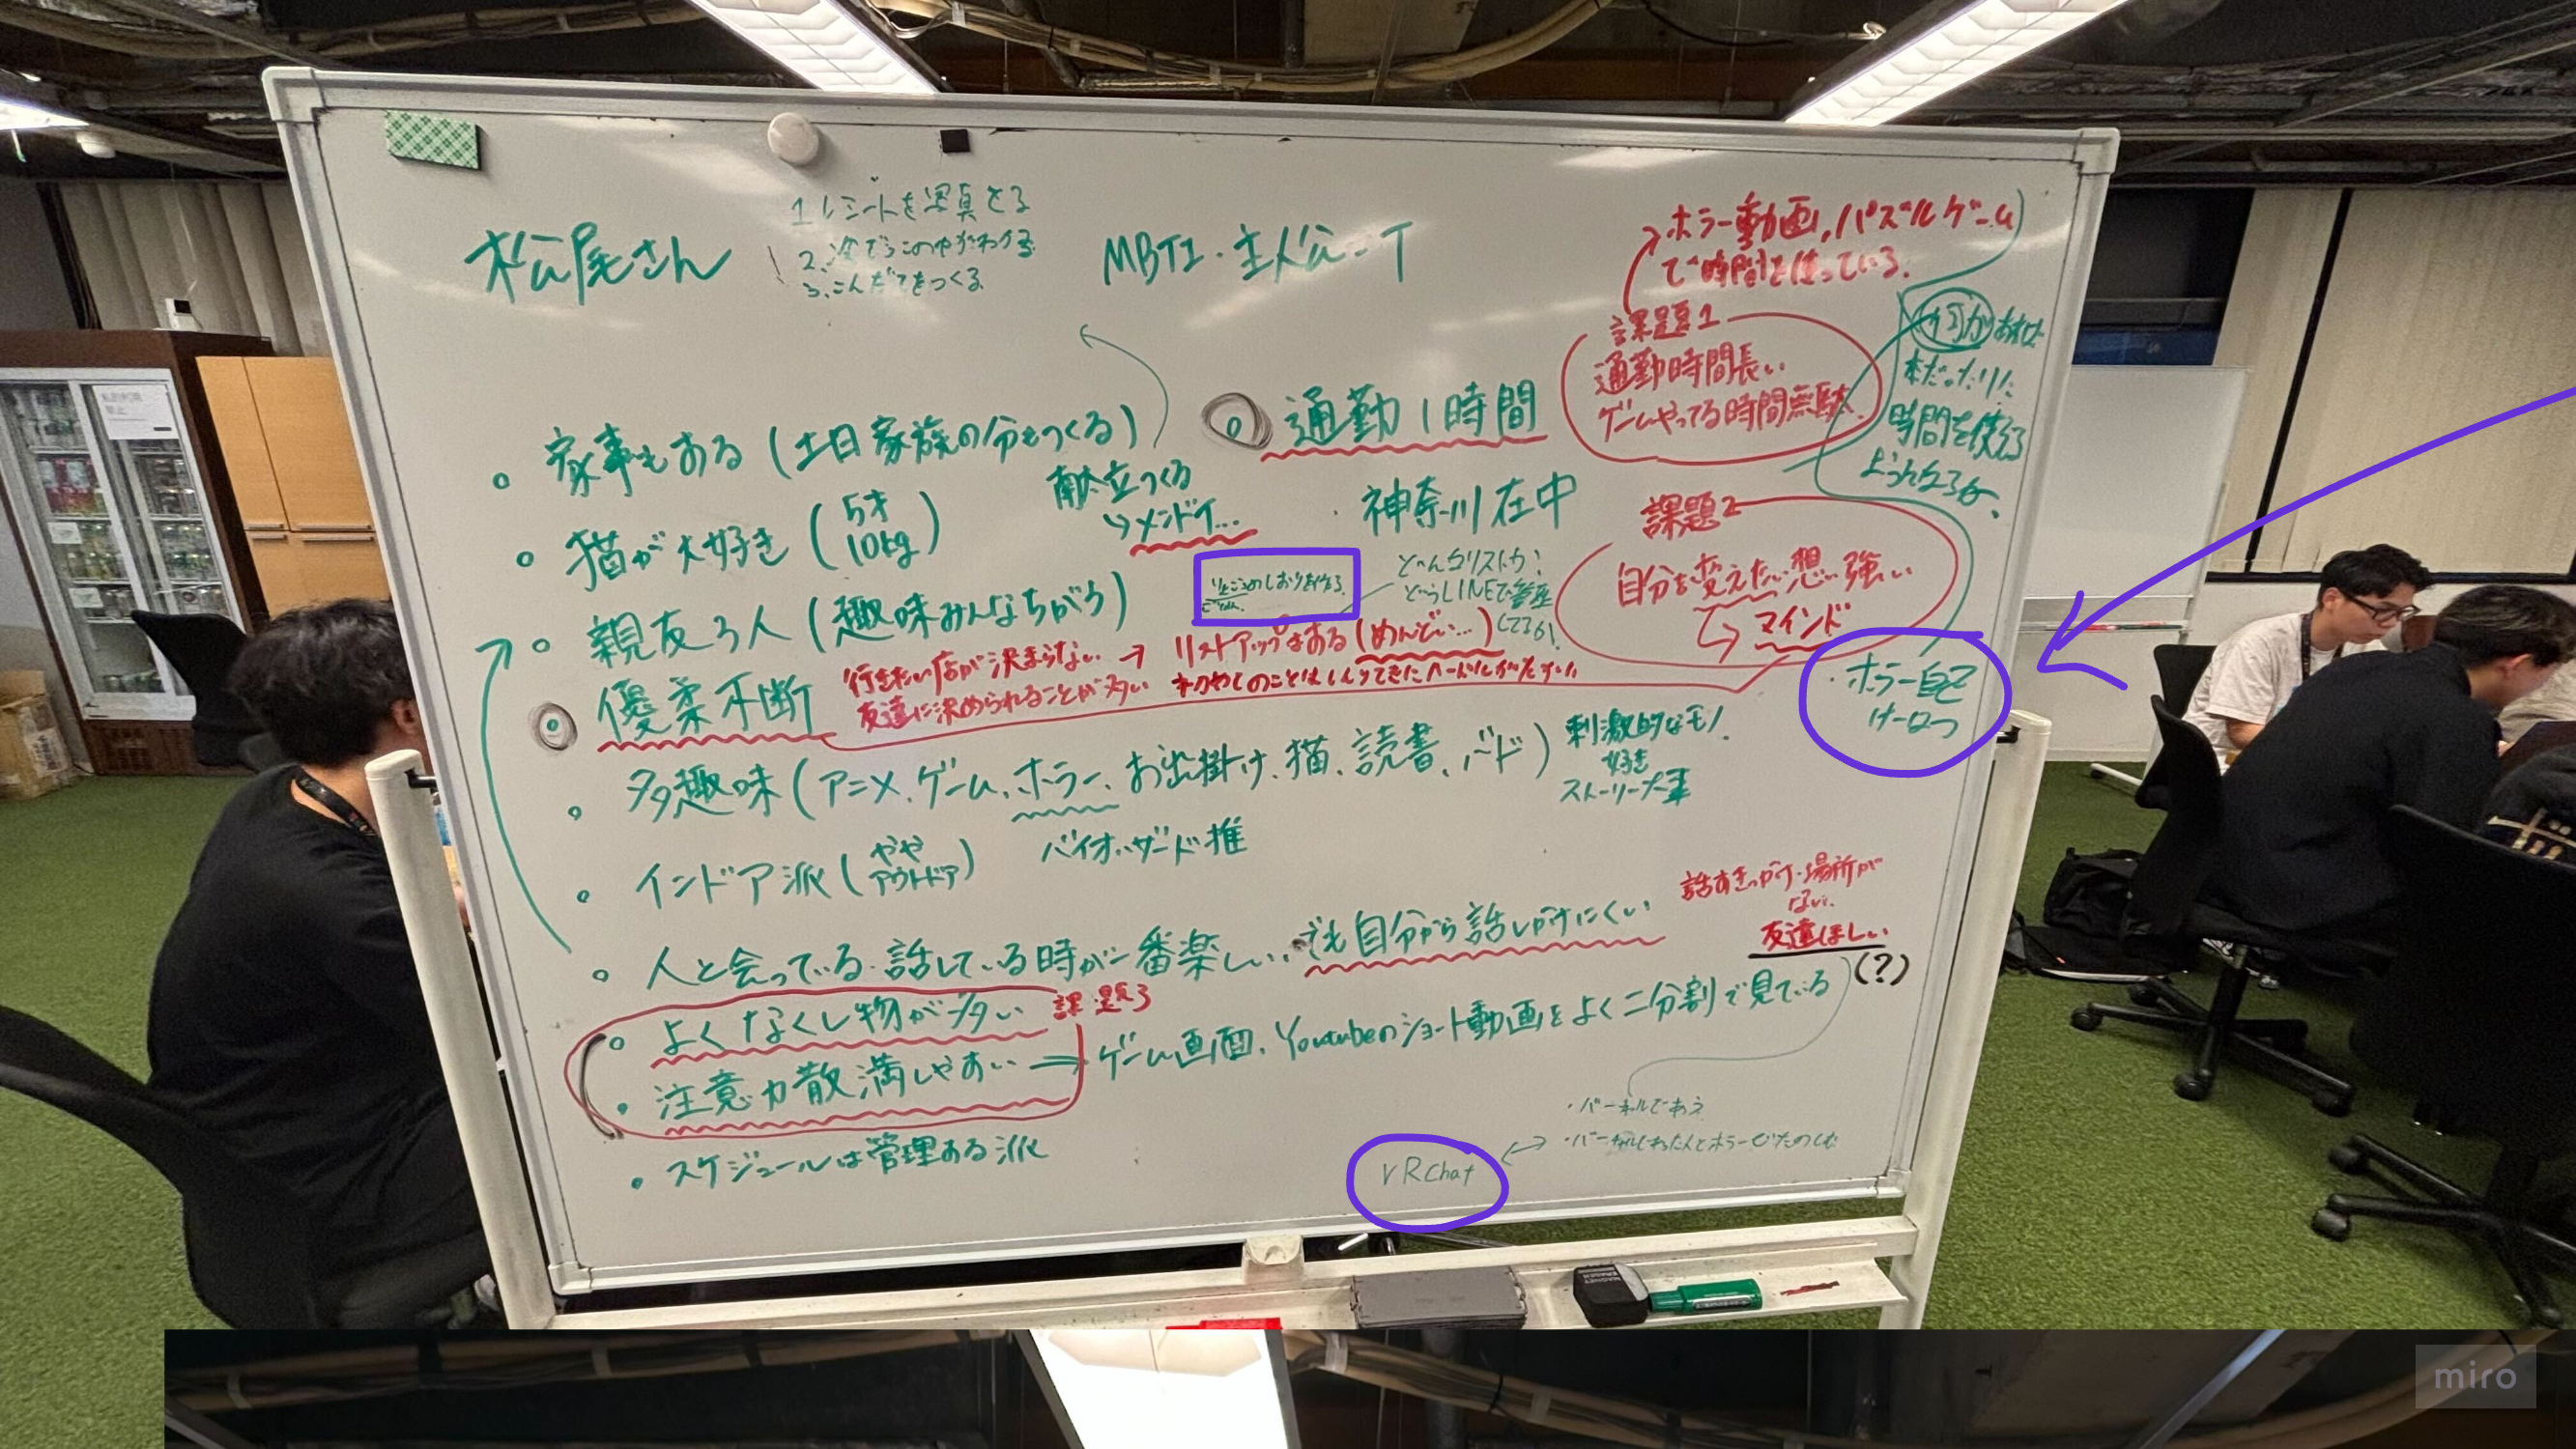 松尾さん
1. レシートを写真とる
3. こんだてをつくる
MBTI・主人公-T
ホラー動画, パズルゲーム
で時間を使っている.
課題1
通勤時間長い
ゲームやってる時間無駄.
何かあれば
本だったり
時間を使える
通勤1時間
家事もある (土日家族の分もつくる)
献立つくる
↳メンドイ...
猫が大好き (5才 10kg)
神奈川在中
課題2
自分を変えたい想い強い
マインド
どんなリストか?
親友3人 (趣味みんなちがう)
行きたい店が決まらない → リストアップはある (めんどい...)
友達に決められることが多い
優柔不断
ホラー自己
多趣味 (アニメ、ゲーム、ホラー、お出掛け、猫、読書、バド)
刺激的なモノ
好き
ストーリー大事
インドア派 (やや アウトドア)
バイオハザード推
話すきっかけ・場所が
ない
友達ほしい
(?)
人と会っている・話している時が一番楽しい、でも自分から話しかけにくい
課題3
よくなくし物が多い
注意力散満しやすい → ゲーム画面、Youtubeのショート動画をよく二分割で見ている
スケジュールは管理ある派
VRchat
miro